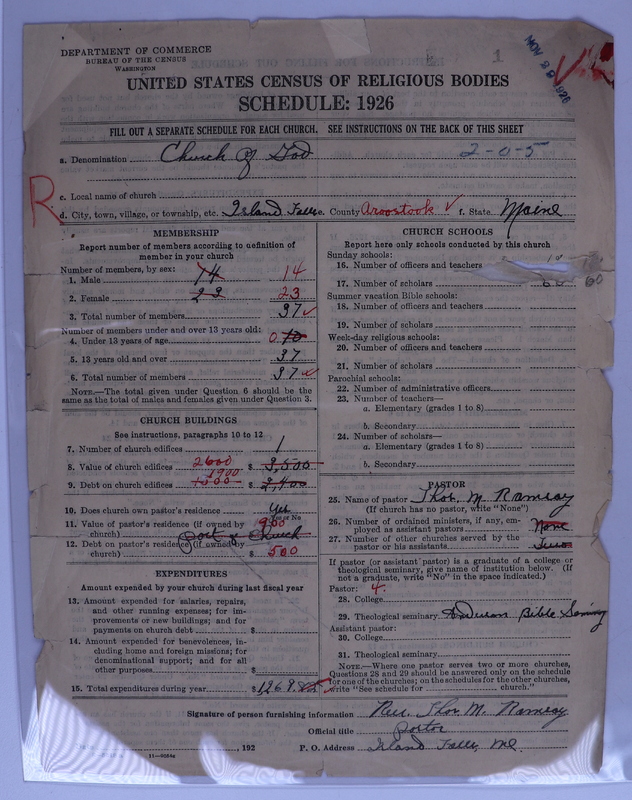 DEPARTMENT OF COMMERCE
BUREAU OF THE CENSUS
WASHINGTON
1
NOV 29 1926
UNITED STATES CENSUS OF RELIGIOUS BODIES
SCHEDULE: 1926
FILL OUT A SEPARATE SCHEDULE FOR EACH CHURCH. SEE INSTRUCTIONS ON THE BACK OF THIS SHEET
a. Denomination Church of God 2-0-5
R
c. Local name of church
d. City, town, village, or township, etc. Island Falls e. County Aroostook f. State Maine
MEMBERSHIP
Report number of members according to definition of
member in your church
Number of members, by sex:
1. Male 14 14
2. Female 23 23
3. Total number of members 37
Number of members under and over 13 years old:
4. Under 13 years of age 0 10
5. 13 years old and over 37
6. Total number of members 37
NOTE.—The total given under Question 6 should be
same as the total of males and females given under Question 3.
CHURCH BUILDINGS
See instructions, paragraphs 10 to 12
7. Number of church edifices 1
8. Value of church edifices 2600 $ 3,500
9. Debt on church edifices 1900 $ 2,400
10. Does church own pastor's residence yes
Yes or No
11. Value of pastor's residence (if owned by
church) 900
12. Debt on pastor's residence (if owned by
church) $ 500
EXPENDITURES
Amount expended by your church during last fiscal year
13. Amount expended for salaries, repairs,
and other running expenses; for im-
provements or new buildings; and for
payments on church debt $
14. Amount expended for benevolences, in-
cluding home and foreign missions; for
denominational support; and for all
other purposes $
15. Total expenditures during year $ 1269.25
CHURCH SCHOOLS
Report here only schools conducted by this church
Sunday schools:
16. Number of officers and teachers
17. Number of scholars 60 60
Summer vacation Bible schools:
18. Number of officers and teachers
19. Number of scholars
Week-day religious schools:
20. Number of officers and teachers
21. Number of scholars
Parochial schools:
22. Number of administrative officers
23. Number of teachers—
a. Elementary (grades 1 to 8)
b. Secondary
24. Number of scholars—
a. Elementary (grades 1 to 8)
b. Secondary
PASTOR
25. Name of pastor Thos. M. Ramsay
(If church has no pastor, write "None")
26. Number of ordained ministers, if any, em-
ployed as assistant pastors None
27. Number of other churches served by the
pastor or his assistants Two
If pastor (or assistant pastor) is a graduate of a college or
theological seminary, give name of institution below. (If
not a graduate, write "No" in the space indicated.)
Pastor: 4.
28. College
29. Theological seminary Bible Seminary
Assistant pastor:
30. College
31. Theological seminary
NOTE.—Where one pastor serves two or more churches,
Questions 28 and 29 should be answered only on the schedule
for one of the churches; on the schedules for the other churches,
write "See schedule for church."
Signature of person furnishing information Rev. Thos. M. Ramsay
Official title Pastor
, 192 P. O. Address Island Falls, Me